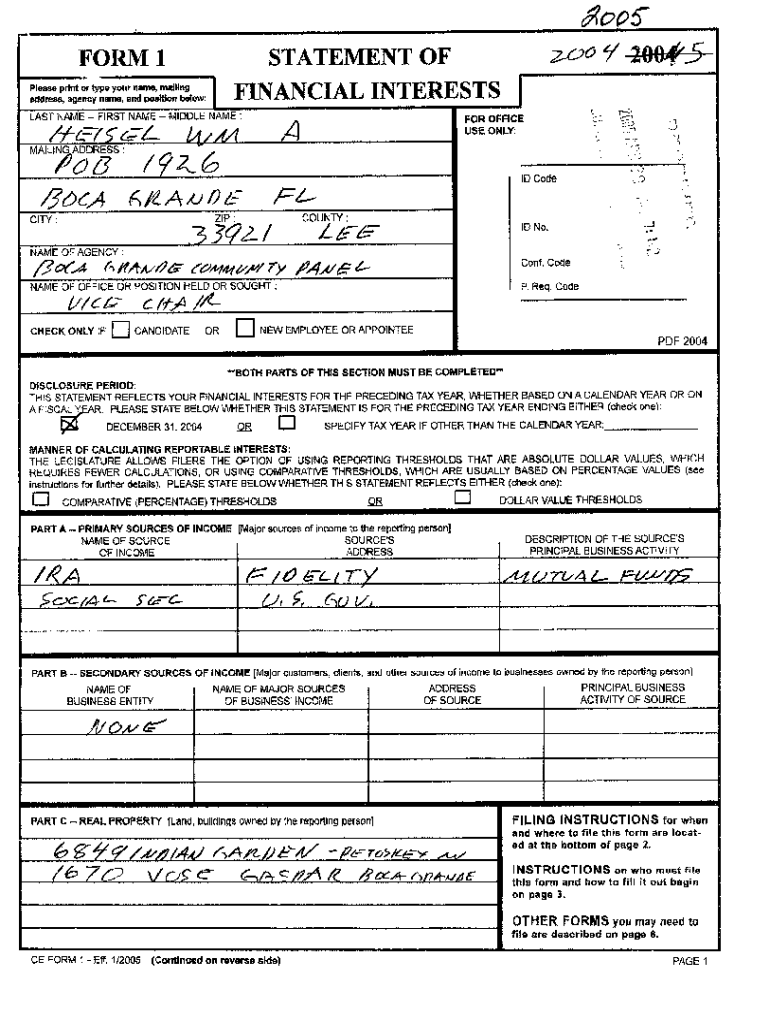 2005
FORM 1 STATEMENT OF 2004 2004 5
Please print or type your name, mailing
address, agency name, and position below:
FINANCIAL INTERESTS
LAST NAME – FIRST NAME – MIDDLE NAME :
HEISEL WM A
MAILING ADDRESS :
POB 1926
BOCA GRANDE FL
CITY : ZIP : COUNTY :
33921 LEE
NAME OF AGENCY :
BOCA GRANDE COMMUNITY PANEL
NAME OF OFFICE OR POSITION HELD OR SOUGHT :
VICE CHAIR
CHECK ONLY IF CANDIDATE OR NEW EMPLOYEE OR APPOINTEE
FOR OFFICE
USE ONLY:
ID Code
ID No.
Conf. Code
P. Req. Code
PDF 2004
**BOTH PARTS OF THIS SECTION MUST BE COMPLETED**
DISCLOSURE PERIOD:
THIS STATEMENT REFLECTS YOUR FINANCIAL INTERESTS FOR THE PRECEDING TAX YEAR, WHETHER BASED ON A CALENDAR YEAR OR ON
A FISCAL YEAR. PLEASE STATE BELOW WHETHER THIS STATEMENT IS FOR THE PRECEDING TAX YEAR ENDING EITHER (check one):
DECEMBER 31, 2004 OR SPECIFY TAX YEAR IF OTHER THAN THE CALENDAR YEAR:
MANNER OF CALCULATING REPORTABLE INTERESTS:
THE LEGISLATURE ALLOWS FILERS THE OPTION OF USING REPORTING THRESHOLDS THAT ARE ABSOLUTE DOLLAR VALUES, WHICH
REQUIRES FEWER CALCULATIONS, OR USING COMPARATIVE THRESHOLDS, WHICH ARE USUALLY BASED ON PERCENTAGE VALUES (see
instructions for further details). PLEASE STATE BELOW WHETHER THIS STATEMENT REFLECTS EITHER (check one):
COMPARATIVE (PERCENTAGE) THRESHOLDS OR DOLLAR VALUE THRESHOLDS
PART A -- PRIMARY SOURCES OF INCOME [Major sources of income to the reporting person]
NAME OF SOURCE SOURCE'S DESCRIPTION OF THE SOURCE'S
OF INCOME ADDRESS PRINCIPAL BUSINESS ACTIVITY
IRA FIDELITY MUTUAL FUNDS
SOCIAL SEC U.S. GOV.
PART B -- SECONDARY SOURCES OF INCOME [Major customers, clients, and other sources of income to businesses owned by the reporting person]
NAME OF NAME OF MAJOR SOURCES ADDRESS PRINCIPAL BUSINESS
BUSINESS ENTITY OF BUSINESS' INCOME OF SOURCE ACTIVITY OF SOURCE
NONE
PART C -- REAL PROPERTY [Land, buildings owned by the reporting person]
6849 INDIAN GARDEN - PETOSKEY
1670 GASPAR BOCA GRANDE
FILING INSTRUCTIONS for when
and where to file this form are locat-
ed at the bottom of page 2.
INSTRUCTIONS on who must file
this form and how to fill it out begin
on page 3.
OTHER FORMS you may need to
file are described on page 6.
CE FORM 1 - Eff. 1/2005 (Continued on reverse side) PAGE 1